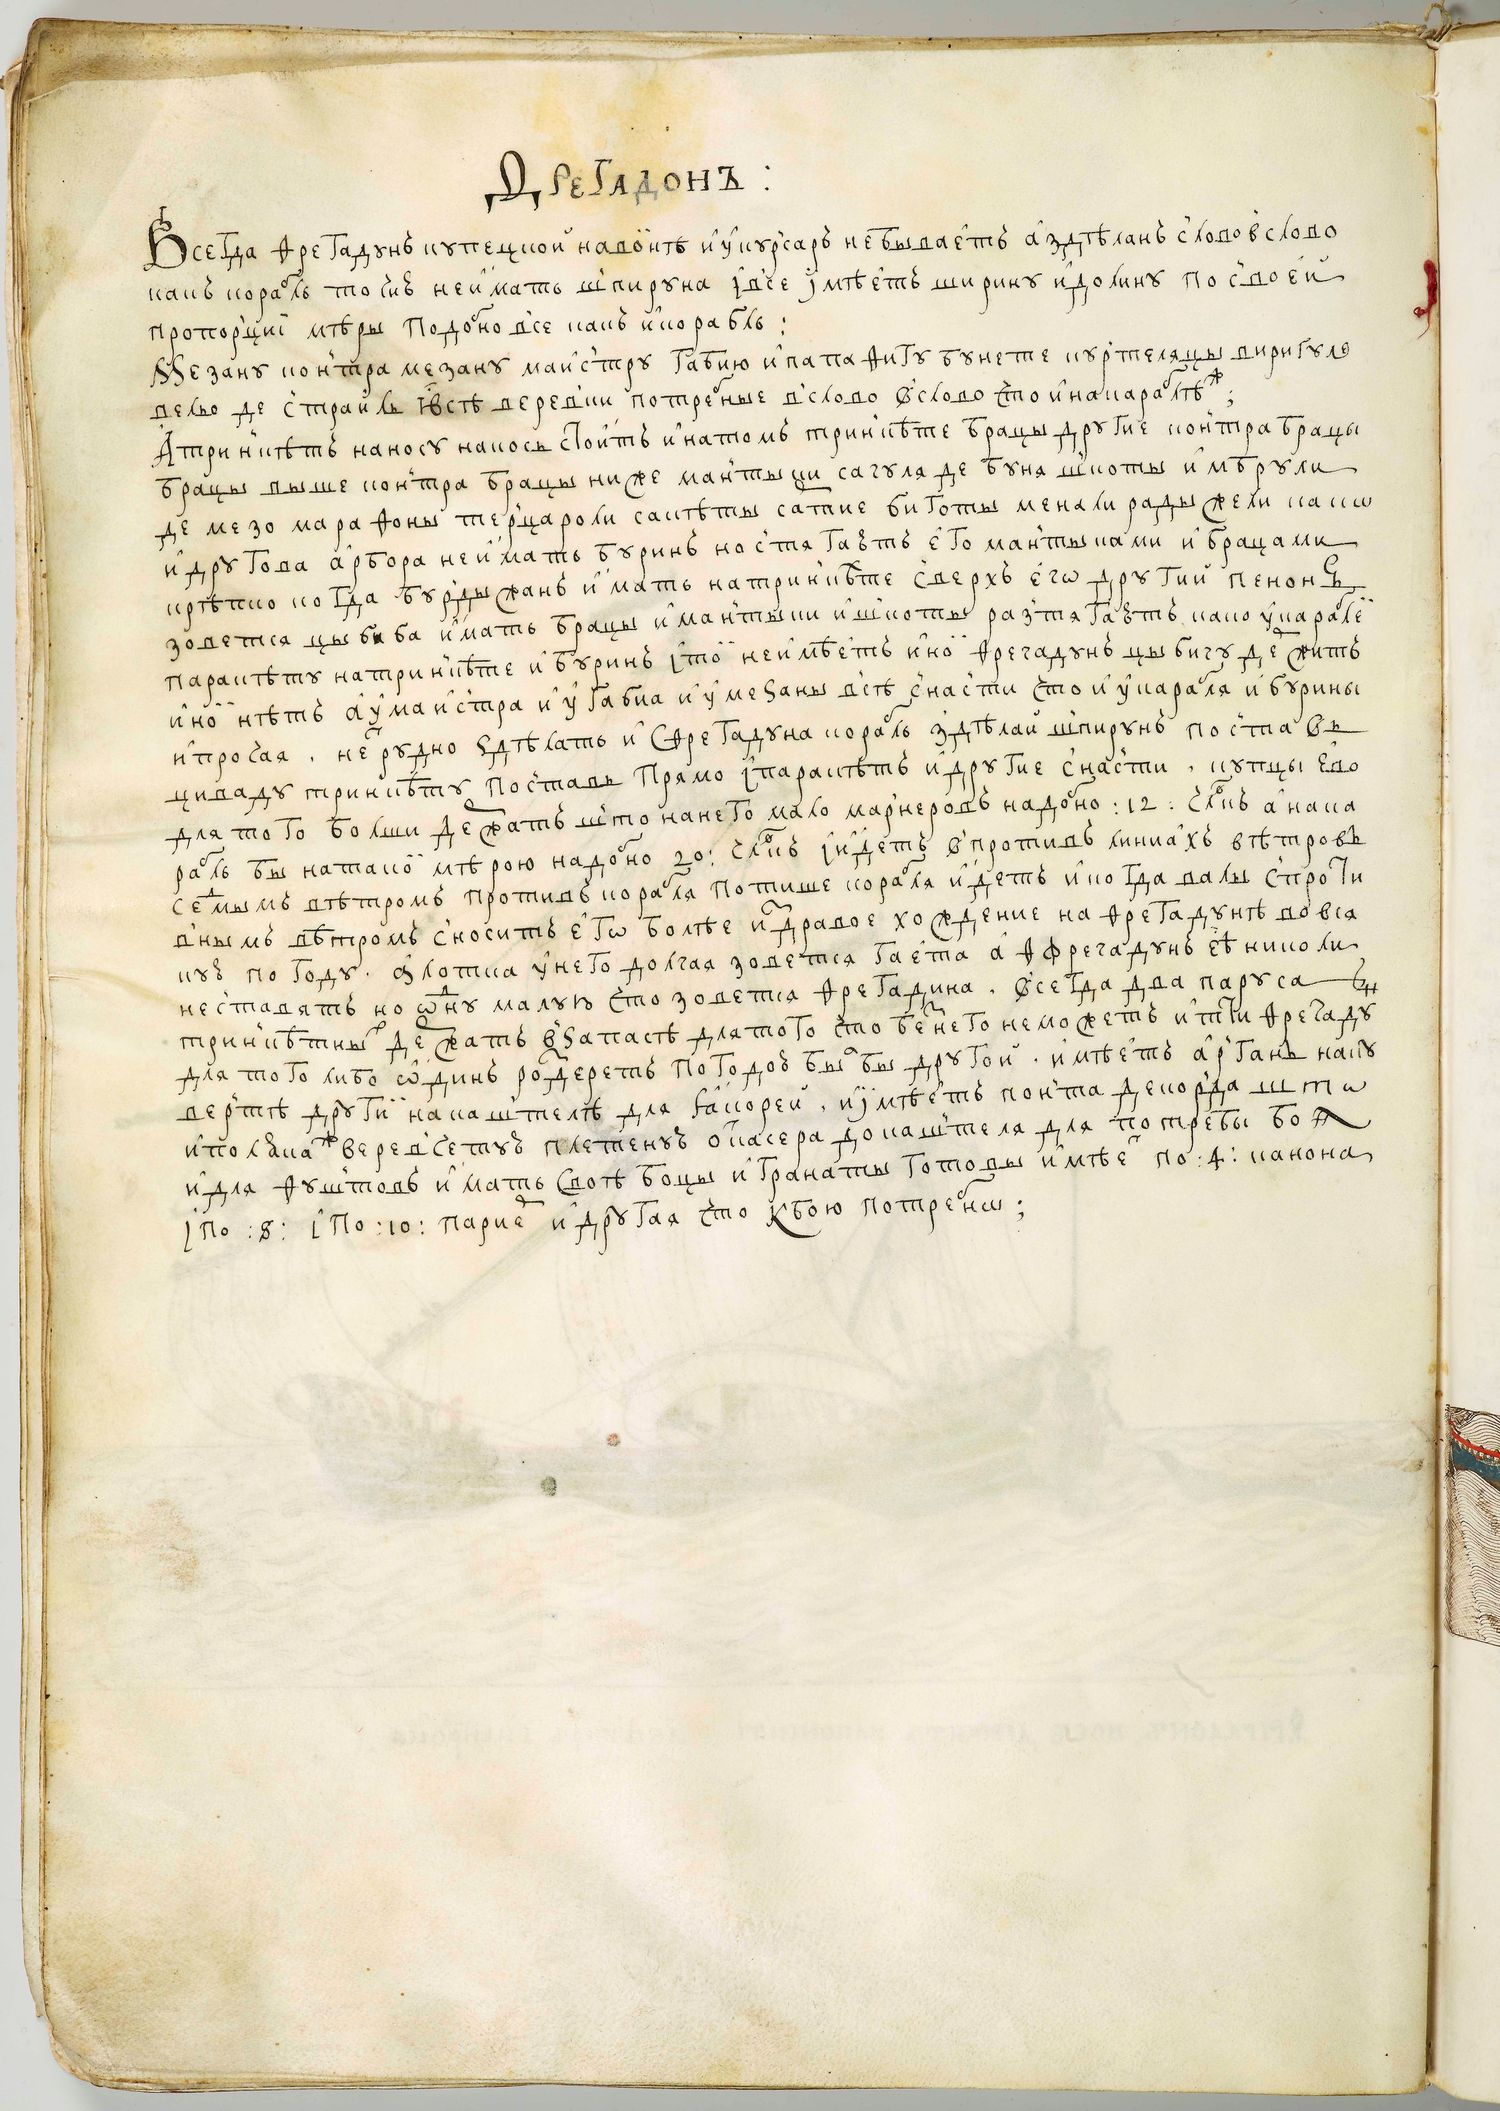 Фрегадонъ :
Всегда фрегадунъ купецкой на воинѣ и у курсаръ не бываетъ а зделанъ слово в слово
какъ корабль толкъ не имать шпируна і все імѣетъ ширину и долину по своеи
пропорциі мѣры подобно все какъ и корабль :
Мезану контра мезану маистру габию и папафигу бунете куртеляцы виригуле
вельо де страйль и всѣ веревки потребные в слово в слово что и на караблѣ ;
А тринкѣтъ на носу накось стоитъ и на томъ тринкѣте брацы другие контра брацы
брацы выше контра брацы ниже мантыки сагуля де буня шкоты имбрули
де мезо марафоны терцароли сакѣты сатие биготы менали рады жели како
и другова арбора не имать буринъ но стягаетъ его мантыками и брацами
крѣпко когда бурдыжанъ имать на тринкѣте сверхъ его другий пенонъ
зовется цыбаба имать брацы и мантыки и шкоты разтягаетъ како у караблеи
паракѣту на тринкѣте и буринъ і тоі не имѣетъ иноі фрегадунъ цыбигу держитъ
иноі нѣтъ а у маистра и у габиа и у мезаны всѣ снасти что и у карабля и бурины
и протчая . не трудно зделать и с фрегадуна корабль зделай шпирунъ поставь
циваду тринкѣту поставь прямо і паракѣтъ и другие снасти . купцы ево
для того болши держатъ што на него мало марнеровъ надобно : 12 : члкъ а на ка
рабль бы на такоі мѣрою надобно 20 : члкъ і идетъ в противъ линиахъ вѣтровъ
семымъ вѣтромъ противъ корабля потише корабля идетъ и когда валы с проти
внымъ вѣтромъ сноситъ его болѣе и здравое хождение на фрегадунѣ во вся
кую погоду . флотка у него долгая зовется гаета а фрегадунъ еѣ николи
не ставятъ но одну малую что зовется фрегадина . всегда два паруса
тринкѣтныхъ держатъ в запасѣ для того что без него не можетъ итти фрегаду
для того либо одинъ роздеретъ погодою былъ бы другой . имѣетъ арганъ на ку
вертѣ другиі на каштелѣ для якорей . и імѣетъ понта де корда што
и по краямъ веревсетую плетеную от касера до каштеля для потребы боя
и для фуштовъ имать своѣ боцы и гранаты готовы имѣетъ по : 4 : канона
і по : 8 : і по : 10 : париетъ и другая что к бою потребно ;